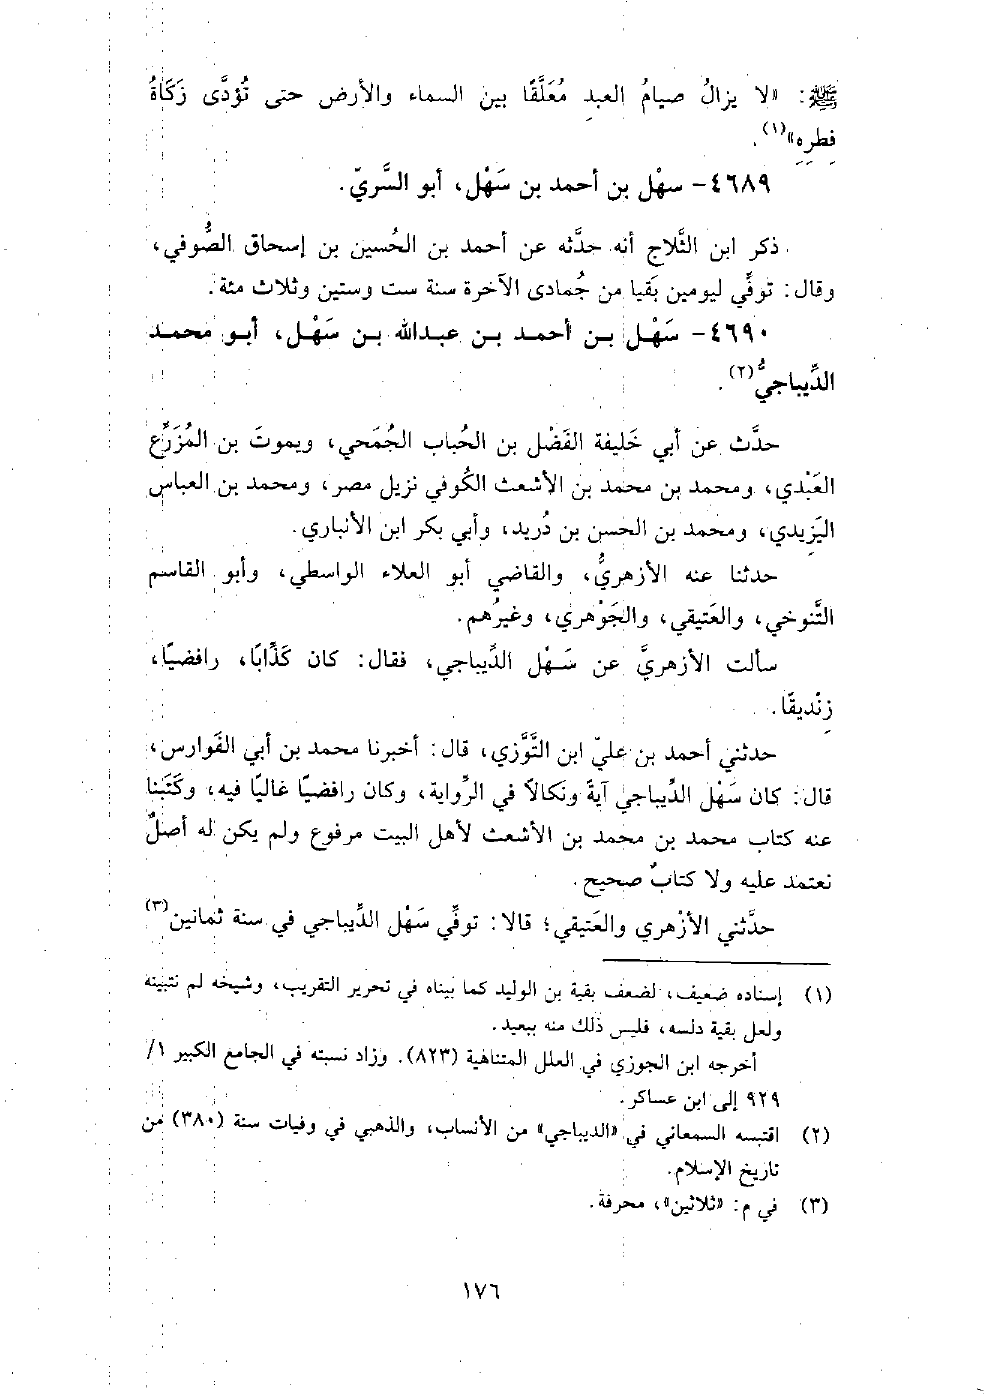 ﷺ: «لا يزالُ صيامُ العبدِ مُعَلَّقًا بين السماء والأرض حتى تُؤدَّى زَكَاةُ
فطرِهِ»(١).
٤٦٨٩- سهْل بن أحمد بن سَهْل، أبو السَّريّ.
ذكر ابن الثَّلاج أنه حدَّثه عن أحمد بن الحُسين بن إسحاق الصُّوفي،
وقال: توفِّي ليومين بَقيا من جُمادى الآخرة سنة ست وستين وثلاث مئة.
٤٦٩٠- سَهْل بن أحمد بن عبدالله بن سَهْل، أبو محمد
الدِّيباجيُّ(٢).
حدَّث عن أبي خَليفة الفَضْل بن الحُباب الجُمَحي، ويموتَ بن المُزَرَّع
العَبْدي، ومحمد بن محمد بن الأشعث الكُوفي نزيل مصر، ومحمد بن العباس
اليَزِيدي، ومحمد بن الحسن بن دُريد، وأبي بكر ابن الأنباري.
حدثنا عنه الأزهريُّ، والقاضي أبو العلاء الواسطي، وأبو القاسم
التَّنوخي، والعَتيقي، والجَوْهري، وغيرُهم.
سألت الأزهريَّ عن سَهْل الدِّيباجي، فقال: كان كَذَّابًا، رافضيًا،
زِنْديقًا.
حدثني أحمد بن عليّ ابن التَّوَّزي، قال: أخبرنا محمد بن أبي الفَوارس،
قال: كان سَهْل الدِّيباجي آيةً ونَكالاً في الرِّواية، وكان رافضيًا غاليًا فيه، وكَتَبنا
عنه كتاب محمد بن محمد بن الأشعث لأهل البيت مرفوع ولم يكن له أصلٌ
نعتمد عليه ولا كتابٌ صحيح.
حدَّثني الأزْهري والعَتيقي؛ قالا: توفِّي سَهْل الدِّيباجي في سنة ثمانين(٣)
(١) إسناده ضعيف، لضعف بقية بن الوليد كما بيناه في تحرير التقريب، وشيخه لم نتبينه
ولعل بقية دلسه، فليس ذلك منه ببعيد.
أخرجه ابن الجوزي في العلل المتناهية (٨٢٣). وزاد نسبته في الجامع الكبير ١/
٩٢٩ إلى ابن عساكر.
(٢) اقتبسه السمعاني في «الديباجي» من الأنساب، والذهبي في وفيات سنة (٣٨٠) من
تاريخ الإسلام.
(٣) في م: «ثلاثين»، محرفة.
١٧٦